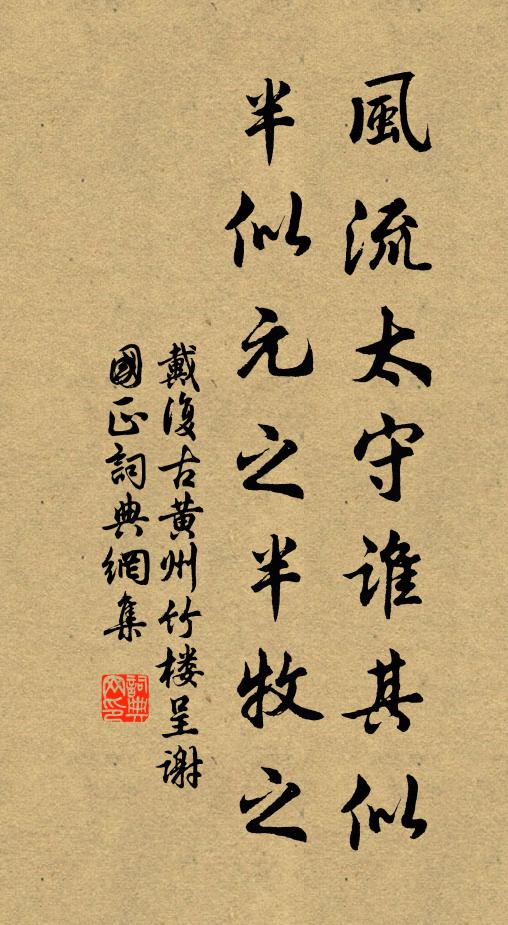 風流太守誰其似
半似元之半牧之
戴復古黄州竹楼呈谢
國正詞典網集
詞典